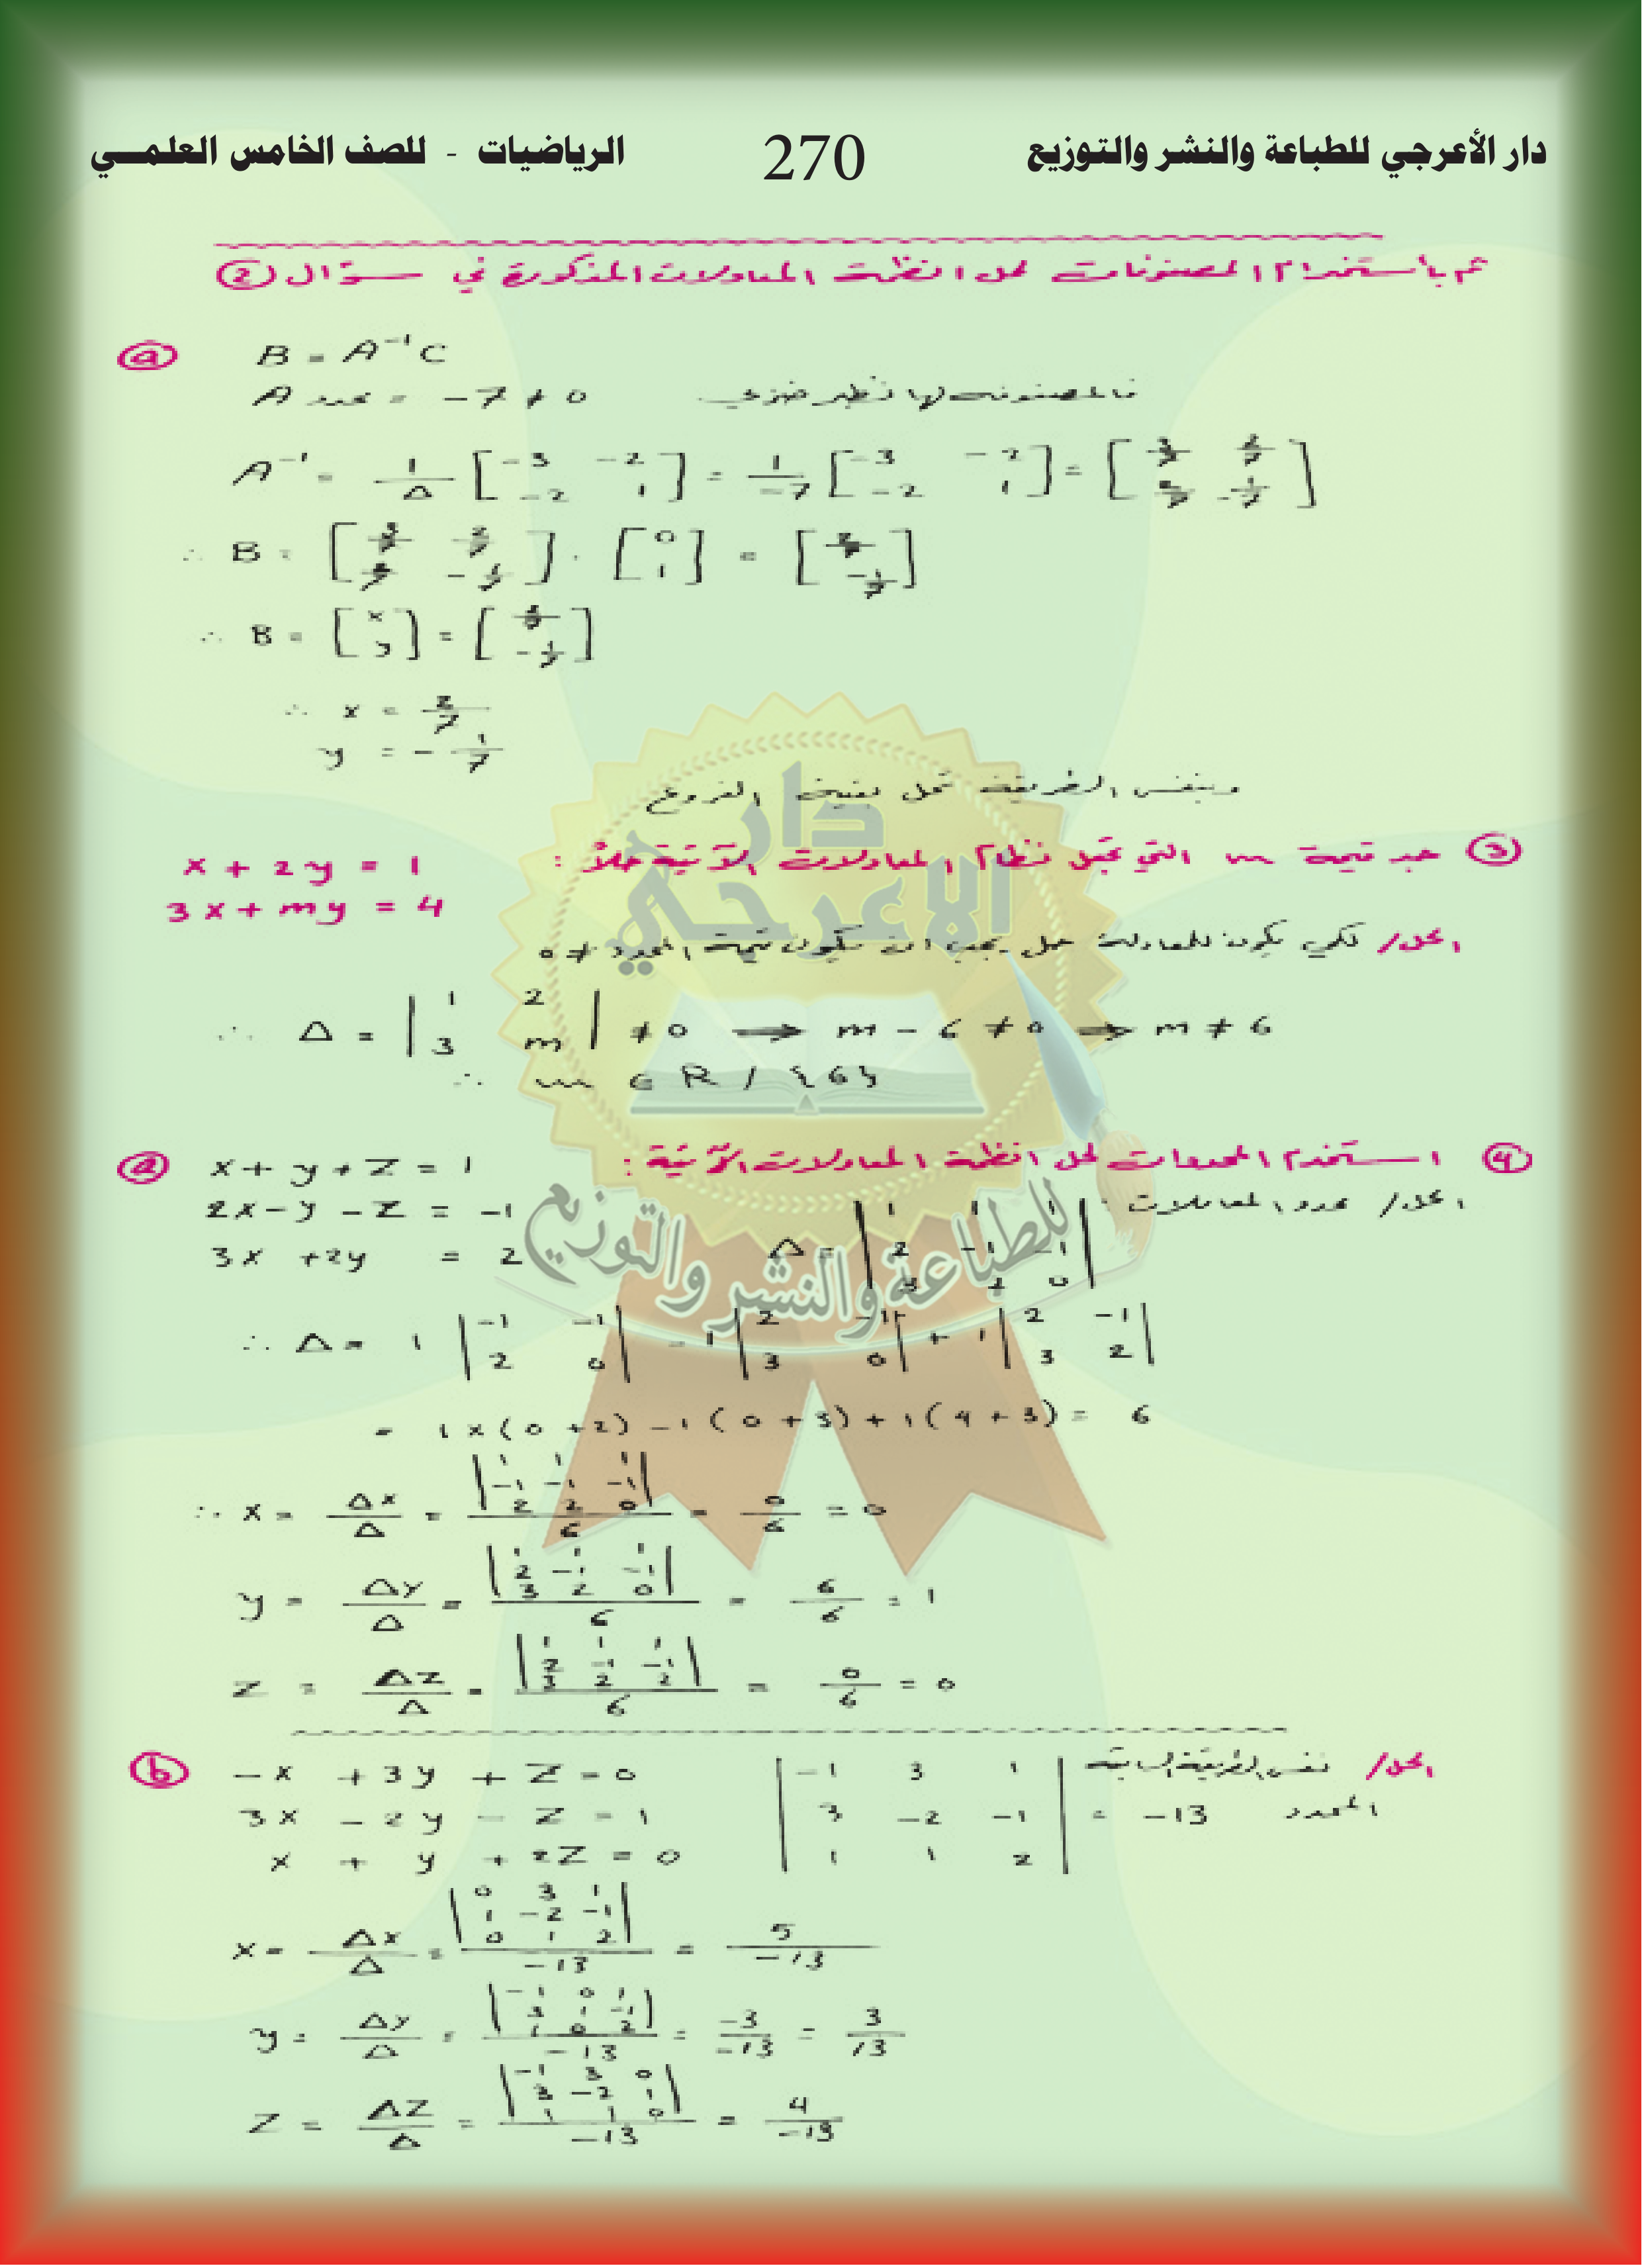 دار الأعرجي للطباعة والنشر والتوزيع 270 الرياضيات - للصف الخامس العلمـــي
ثم بأستخدام المصفوفات لحل انظمة المعادلات المذكورة في سؤال (2)
(a) B = A⁻¹C
محدد A = -7 ≠ 0 فالمصفوفة لها نظير ضربي
A⁻¹ = 1/Δ [-3 -2; -2 1] = 1/-7 [-3 -2; -2 1] = [3/7 2/7; 2/7 -1/7]
∴ B = [3/7 2/7; 2/7 -1/7] · [0; 1] = [2/7; -1/7]
∴ B = [x; y] = [2/7; -1/7]
∴ x = 2/7
y = -1/7
وبنفس الطريقة تحل بقية الفروع
(3) جد قيمة m التي تجعل نظام المعادلات الآتية حلاً :
x + 2y = 1
3x + my = 4
الحل/ لكي يكون للمعادلة حل يجب ان تكون قيمة المحدد ≠ 0
∴ Δ = |1 2; 3 m| ≠ 0 → m - 6 ≠ 0 → m ≠ 6
∴ m ∈ R / {6}
(4) استخدم المحددات لحل انظمة المعادلات الآتية :
(a) x + y + z = 1
2x - y - z = -1
3x + 2y = 2
الحل/ محدد المعاملات :
Δ = |1 1 1; 2 -1 -1; 3 2 0|
∴ Δ = 1 |-1 -1; 2 0| - 1 |2 -1; 3 0| + 1 |2 -1; 3 2|
= 1×(0+2) - 1(0+3) + 1(4+3) = 6
∴ x = Δx/Δ = |1 1 1; -1 -1 -1; 2 2 0|/6 = 0/6 = 0
y = Δy/Δ = |1 1 1; 2 -1 -1; 3 2 0|/6 = 6/6 = 1
z = Δz/Δ = |1 1 1; 2 -1 -1; 3 2 2|/6 = 0/6 = 0
(b) -x + 3y + z = 0
3x - 2y - z = 1
x + y + 2z = 0
الحل/ نفس الطريقة السابقة
المحدد |-1 3 1; 3 -2 -1; 1 1 2| = -13
x = Δx/Δ = |0 3 1; 1 -2 -1; 0 1 2|/-13 = 5/-13
y = Δy/Δ = |-1 0 1; 3 1 -1; 1 0 2|/-13 = -3/-13 = 3/13
z = Δz/Δ = |-1 3 0; 3 -2 1; 1 1 0|/-13 = 4/-13
دار
الاعرجي
للطباعة والنشر والتوزيع